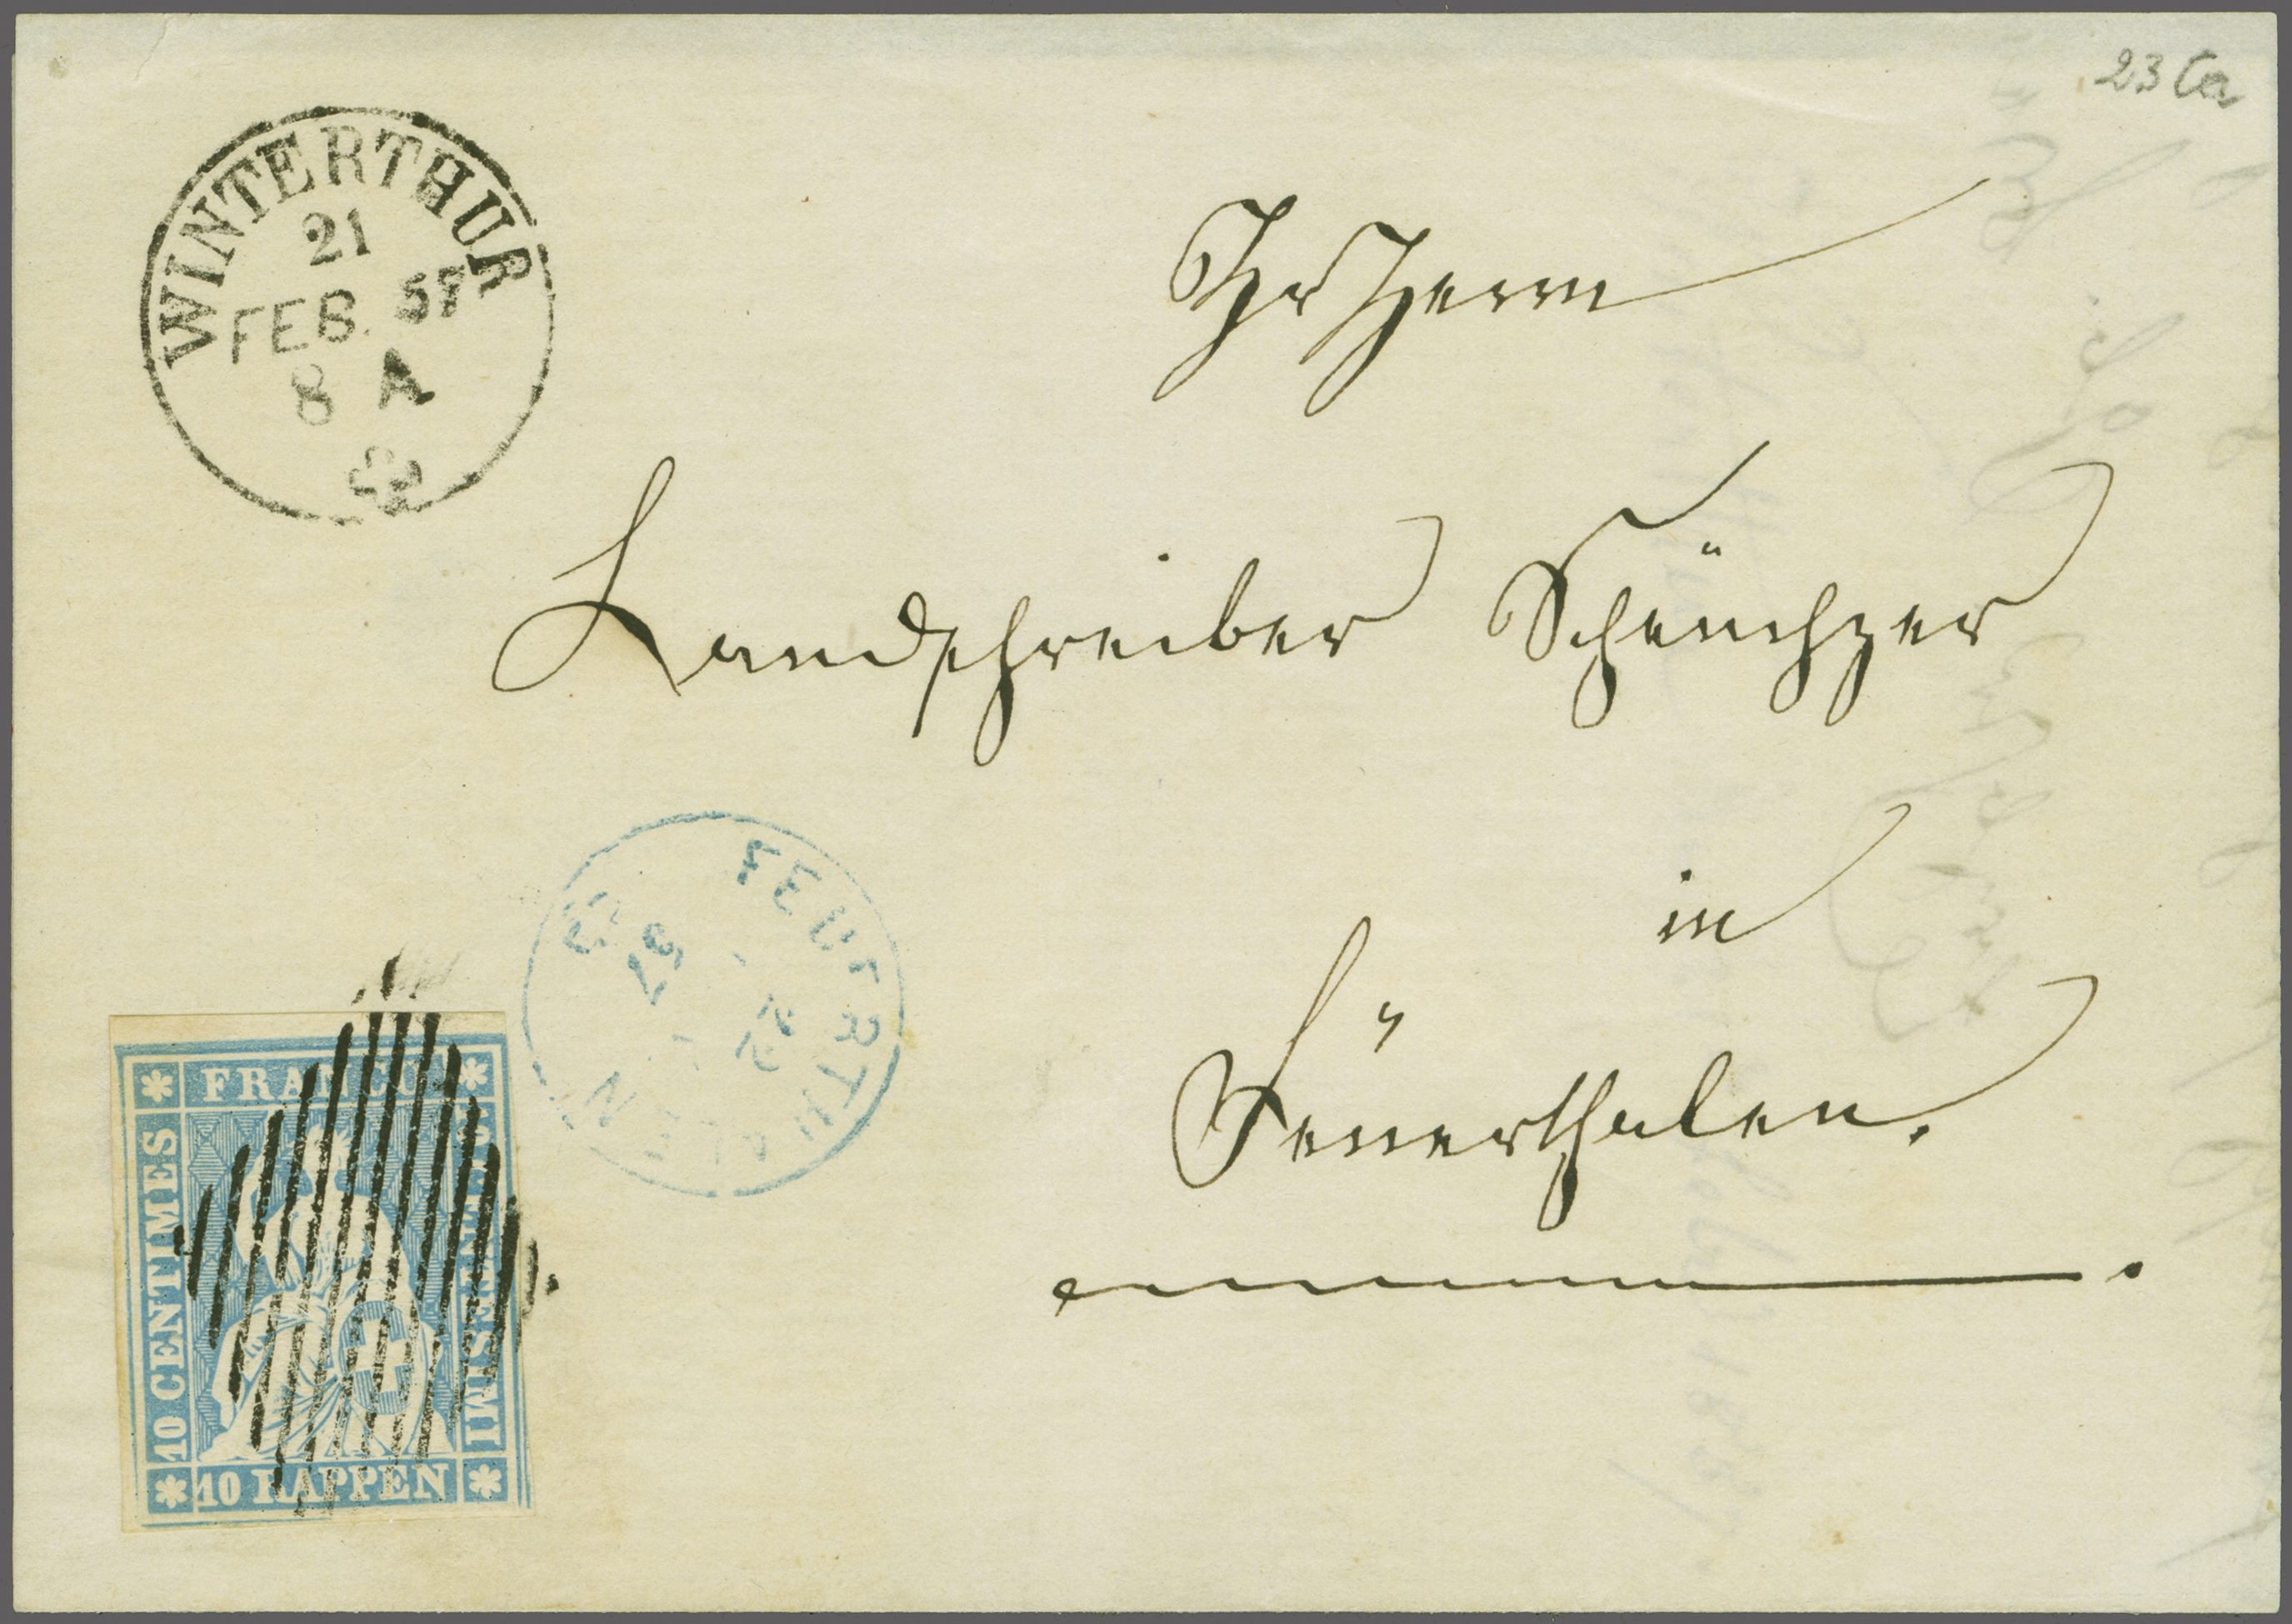 23 Ca
WINTERTHUR
21
FEB. 57
8 A
Herrn
Landschreiber Scheüchzer
in
Feuerthalen.
FEUERTHALEN
22
57
FRANCO
10 CENTIMES
10 RAPPEN